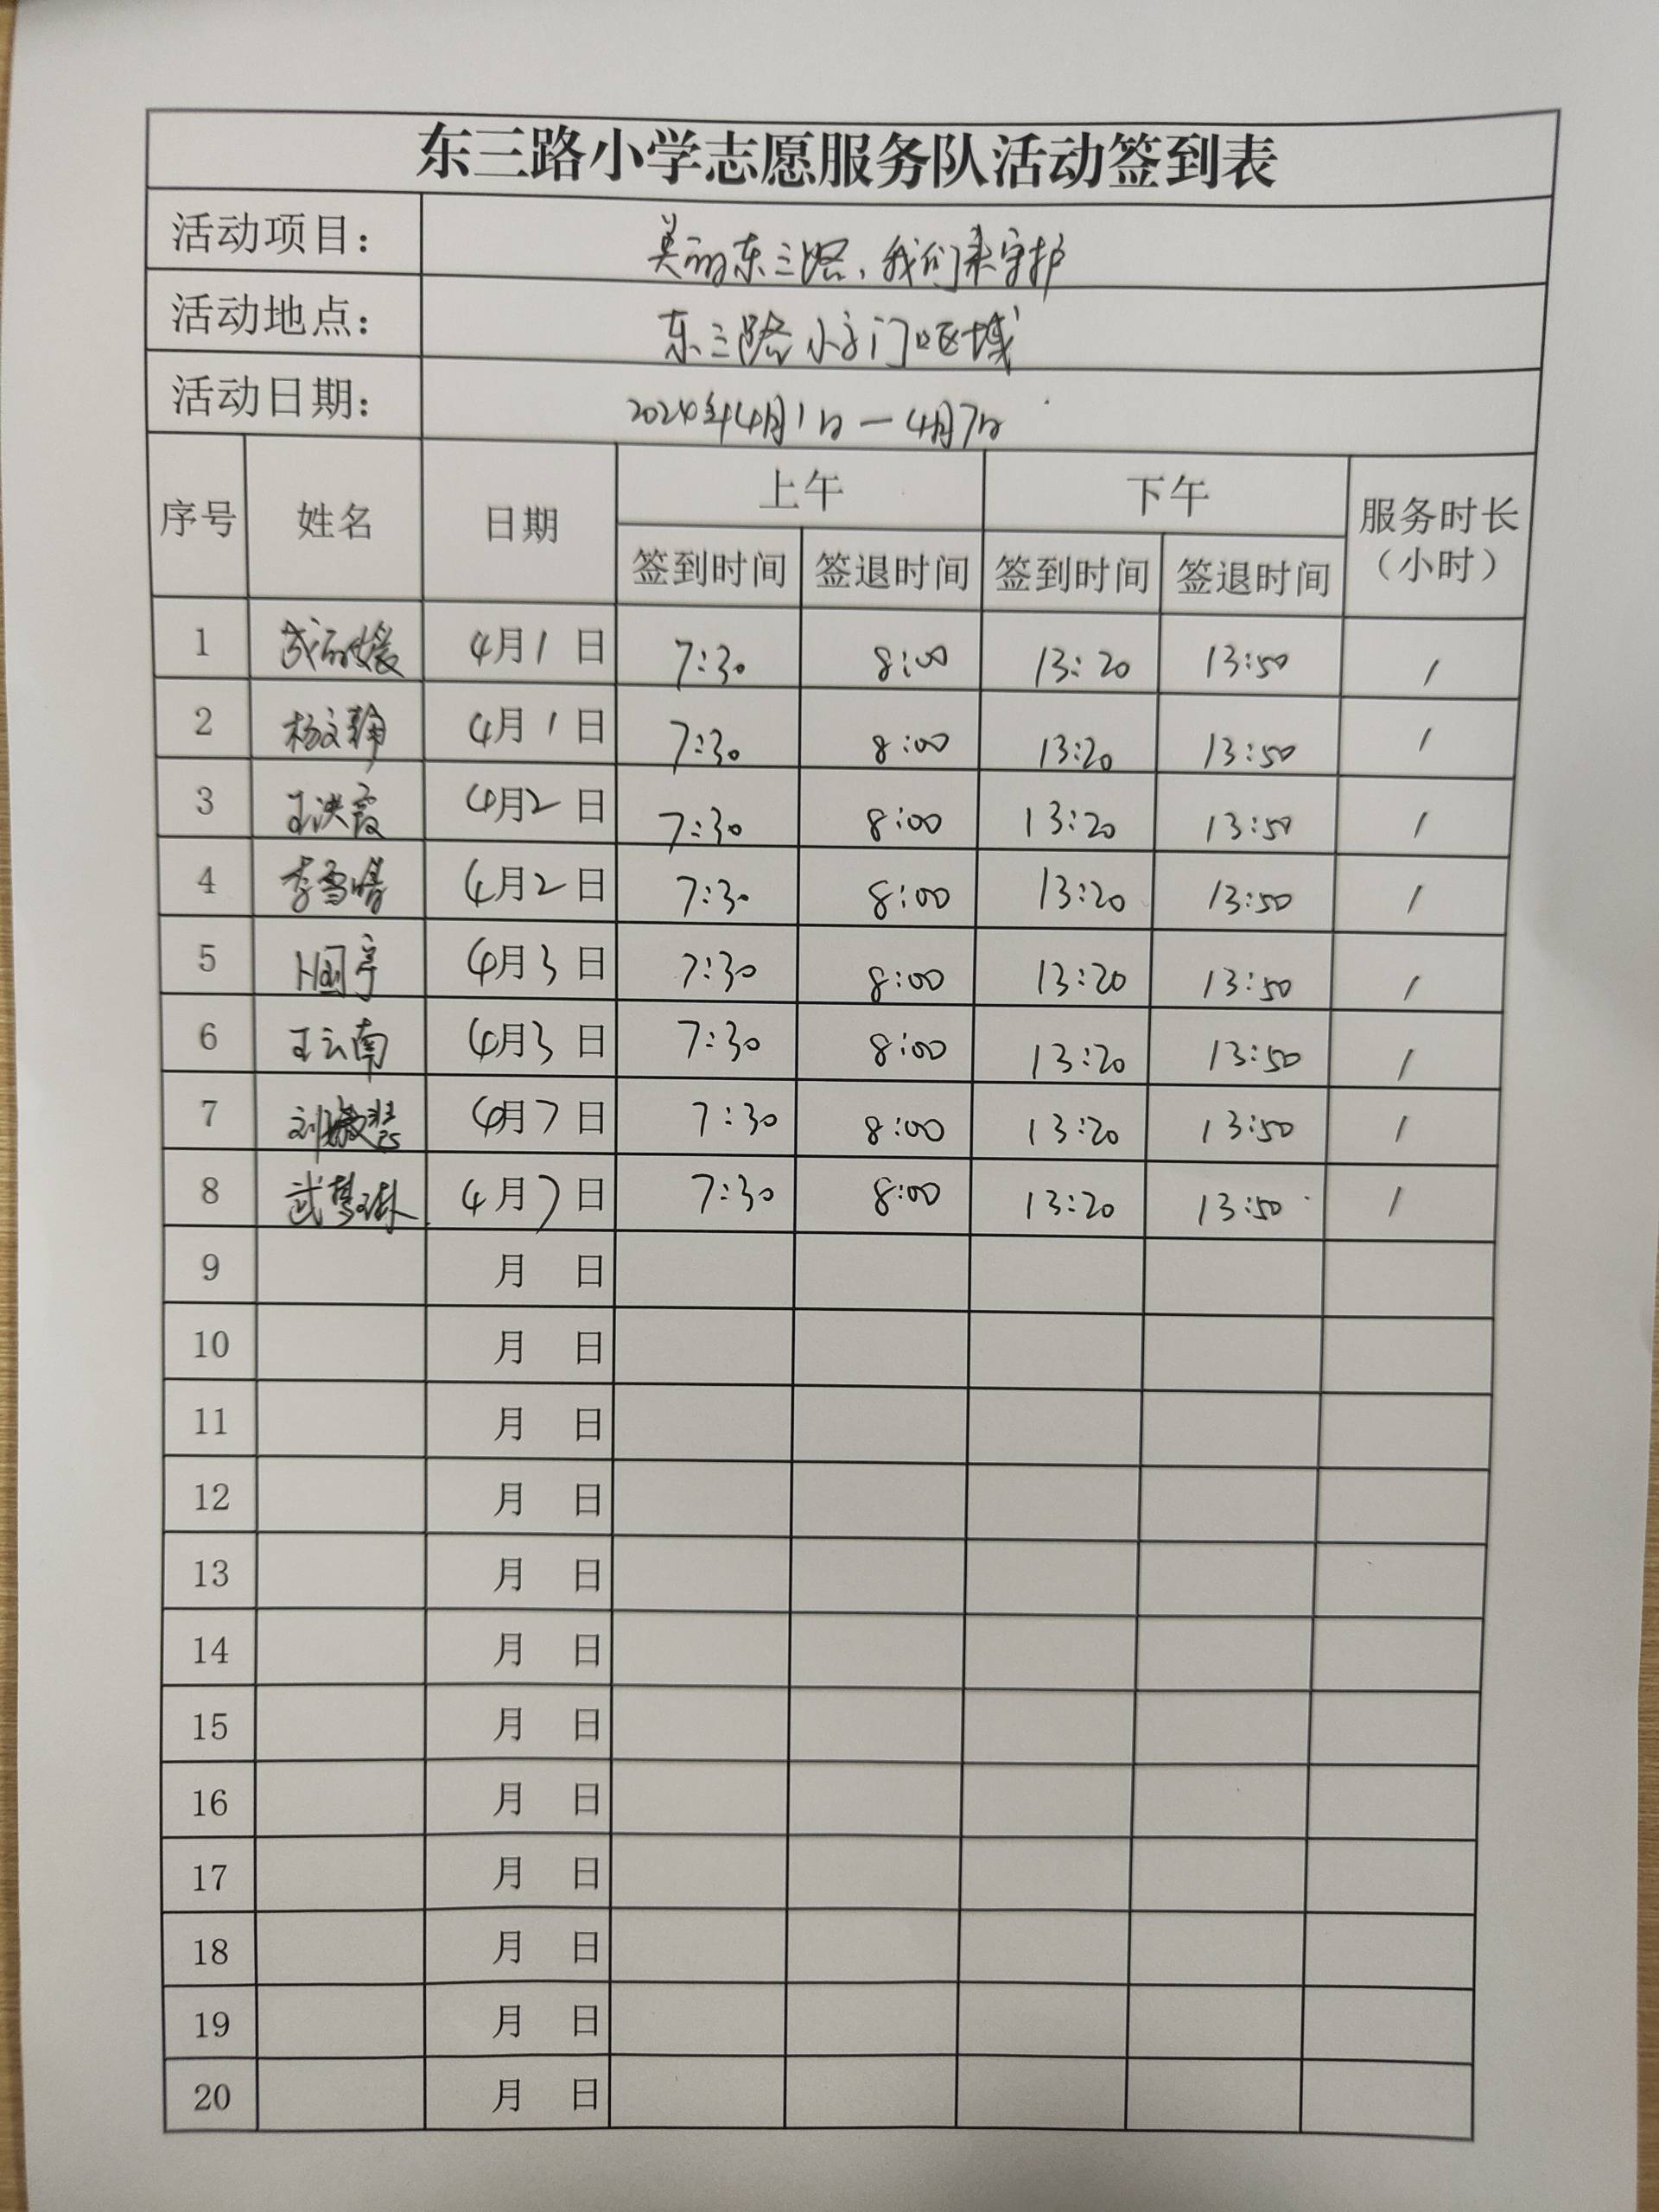 东三路小学志愿服务队活动签到表
活动项目： 美丽东三路，我们来守护
活动地点： 东三路小学门口区域
活动日期： 2024年4月1日—4月7日
序号 姓名 日期 上午 下午 服务时长（小时）
签到时间 签退时间 签到时间 签退时间
1 4月1日 7:30 8:00 13:20 13:50 1
2 杨文 4月1日 7:30 8:00 13:20 13:50 1
3 王洪霞 4月2日 7:30 8:00 13:20 13:50 1
4 李雪晴 4月2日 7:30 8:00 13:20 13:50 1
5 4月3日 7:30 8:00 13:20 13:50 1
6 王云南 4月3日 7:30 8:00 13:20 13:50 1
7 刘 4月7日 7:30 8:00 13:20 13:50 1
8 武梦琳 4月7日 7:30 8:00 13:20 13:50 1
9 月 日
10 月 日
11 月 日
12 月 日
13 月 日
14 月 日
15 月 日
16 月 日
17 月 日
18 月 日
19 月 日
20 月 日